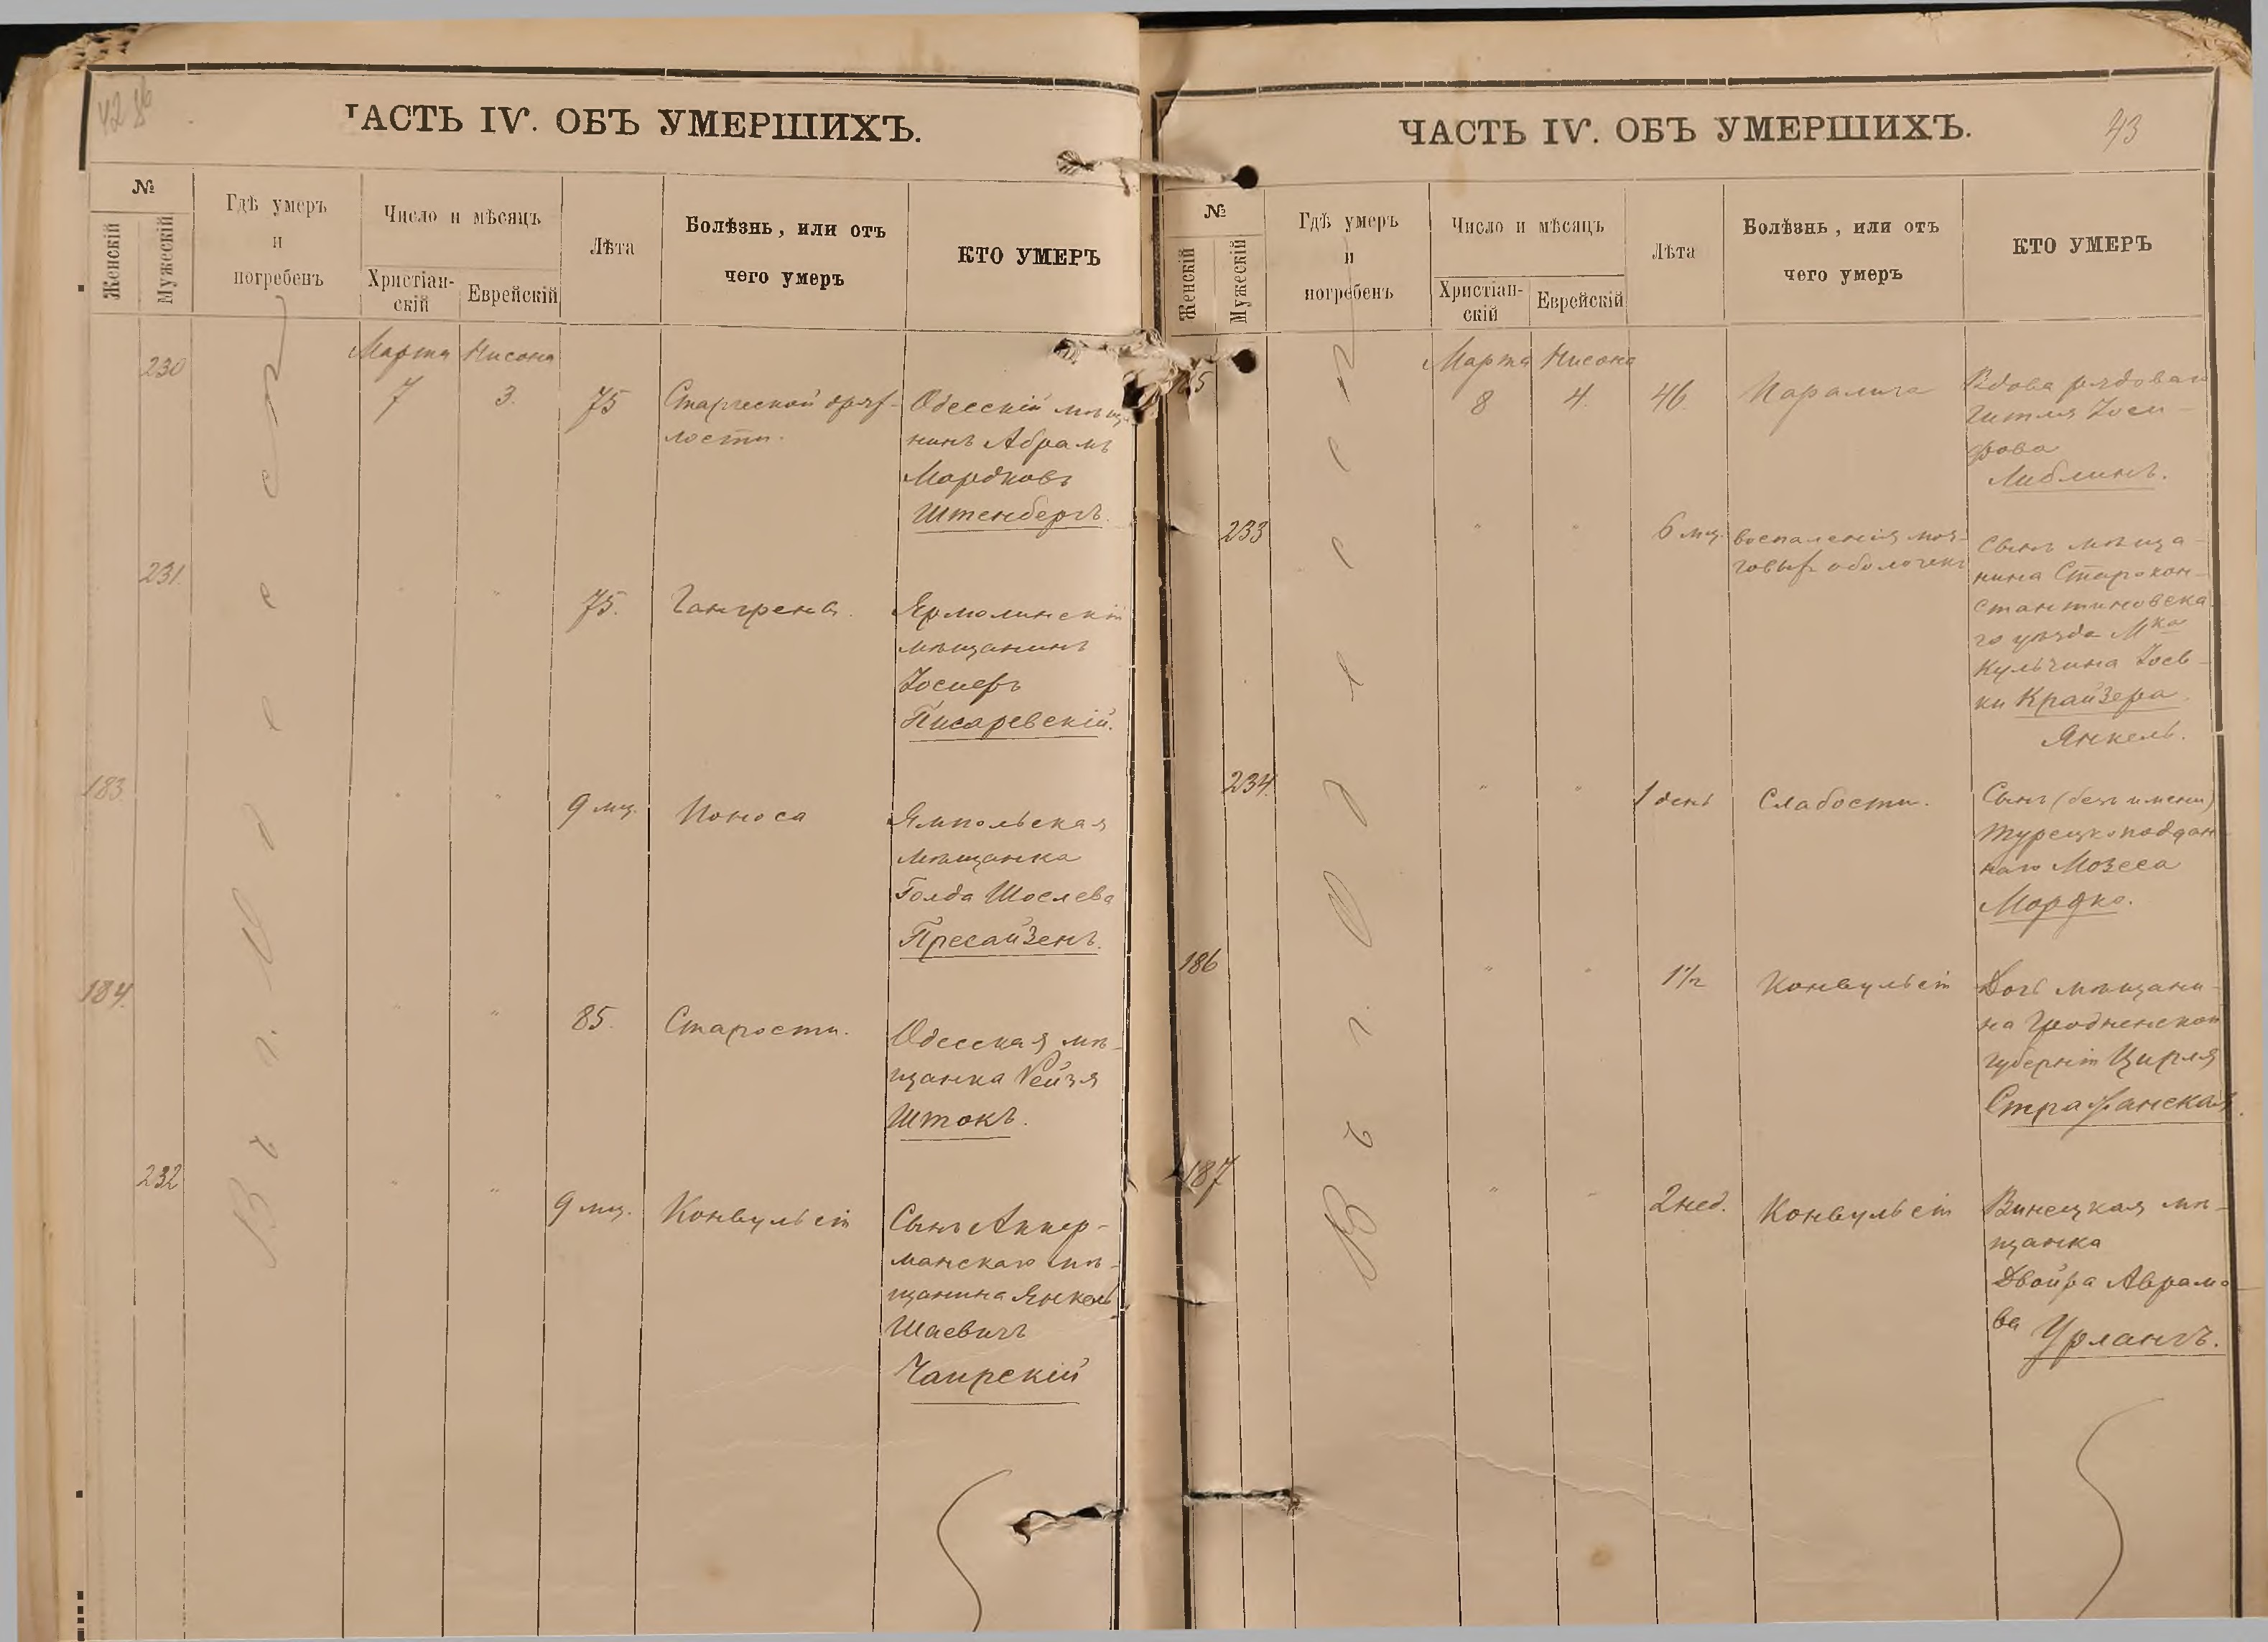 42 об
ЧАСТЬ IV. ОБЪ УМЕРШИХЪ.
№
Женскій
Мужескій
Гдѣ умеръ
и
погребенъ
Число и мѣсяцъ
Христіан-
скій
Еврейскій
Лѣта
Болѣзнь, или отъ
чего умеръ
КТО УМЕРЪ
Въ г. Одессѣ
230
Марта
7
Нисона
3.
75
Старческой дрях-
лости.
Одесскій мѣща-
нинъ Абрамъ
Мордковъ
Штенбергъ.
231.
"
"
75.
Гангрена.
Ярмолинскій
мѣщанинъ
Іосифъ
Писаревскій.
183
"
"
9 мц.
Поноса
Ямпольская
мѣщанка
Голда Шоелева
Пресайзенъ.
184.
"
"
85.
Старости.
Одесская мѣ-
щанка Рейзя
Штокъ.
232
"
"
9 мц.
Конвульсіи
Сынъ Аккер-
манскаго мѣ-
щанина Янкель
Шаевичъ
Чаирскій
43
ЧАСТЬ IV. ОБЪ УМЕРШИХЪ.
№
Женскій
Мужескій
Гдѣ умеръ
и
погребенъ
Число и мѣсяцъ
Христіан-
скій
Еврейскій
Лѣта
Болѣзнь, или отъ
чего умеръ
КТО УМЕРЪ
Въ г. Одессѣ
5
Марта
8
Нисона
4.
46.
Паралича
Вдова рядового
Гитля Іоси-
фова
Либлинъ.
233
"
"
6 мц.
воспаленія моз-
говыхъ оболочекъ
Сынъ мѣща-
нина Старокон-
стантиновска-
го уѣзда Мка
Кульчина Іось-
ки Крайзера
Янкель.
234.
"
"
1 день
Слабости.
Сынъ (безъ имени)
турецкоподдан-
наго Мозеса
Мордко.
186
"
"
1½
Конвульсіи
Дочь мѣщани-
на Гродненской
губерніи Цирля
Страханская.
187
"
"
2 нед.
Конвульсіи
Винецкая мѣ-
щанка
Двойра Аврамо
ва Урлангъ.